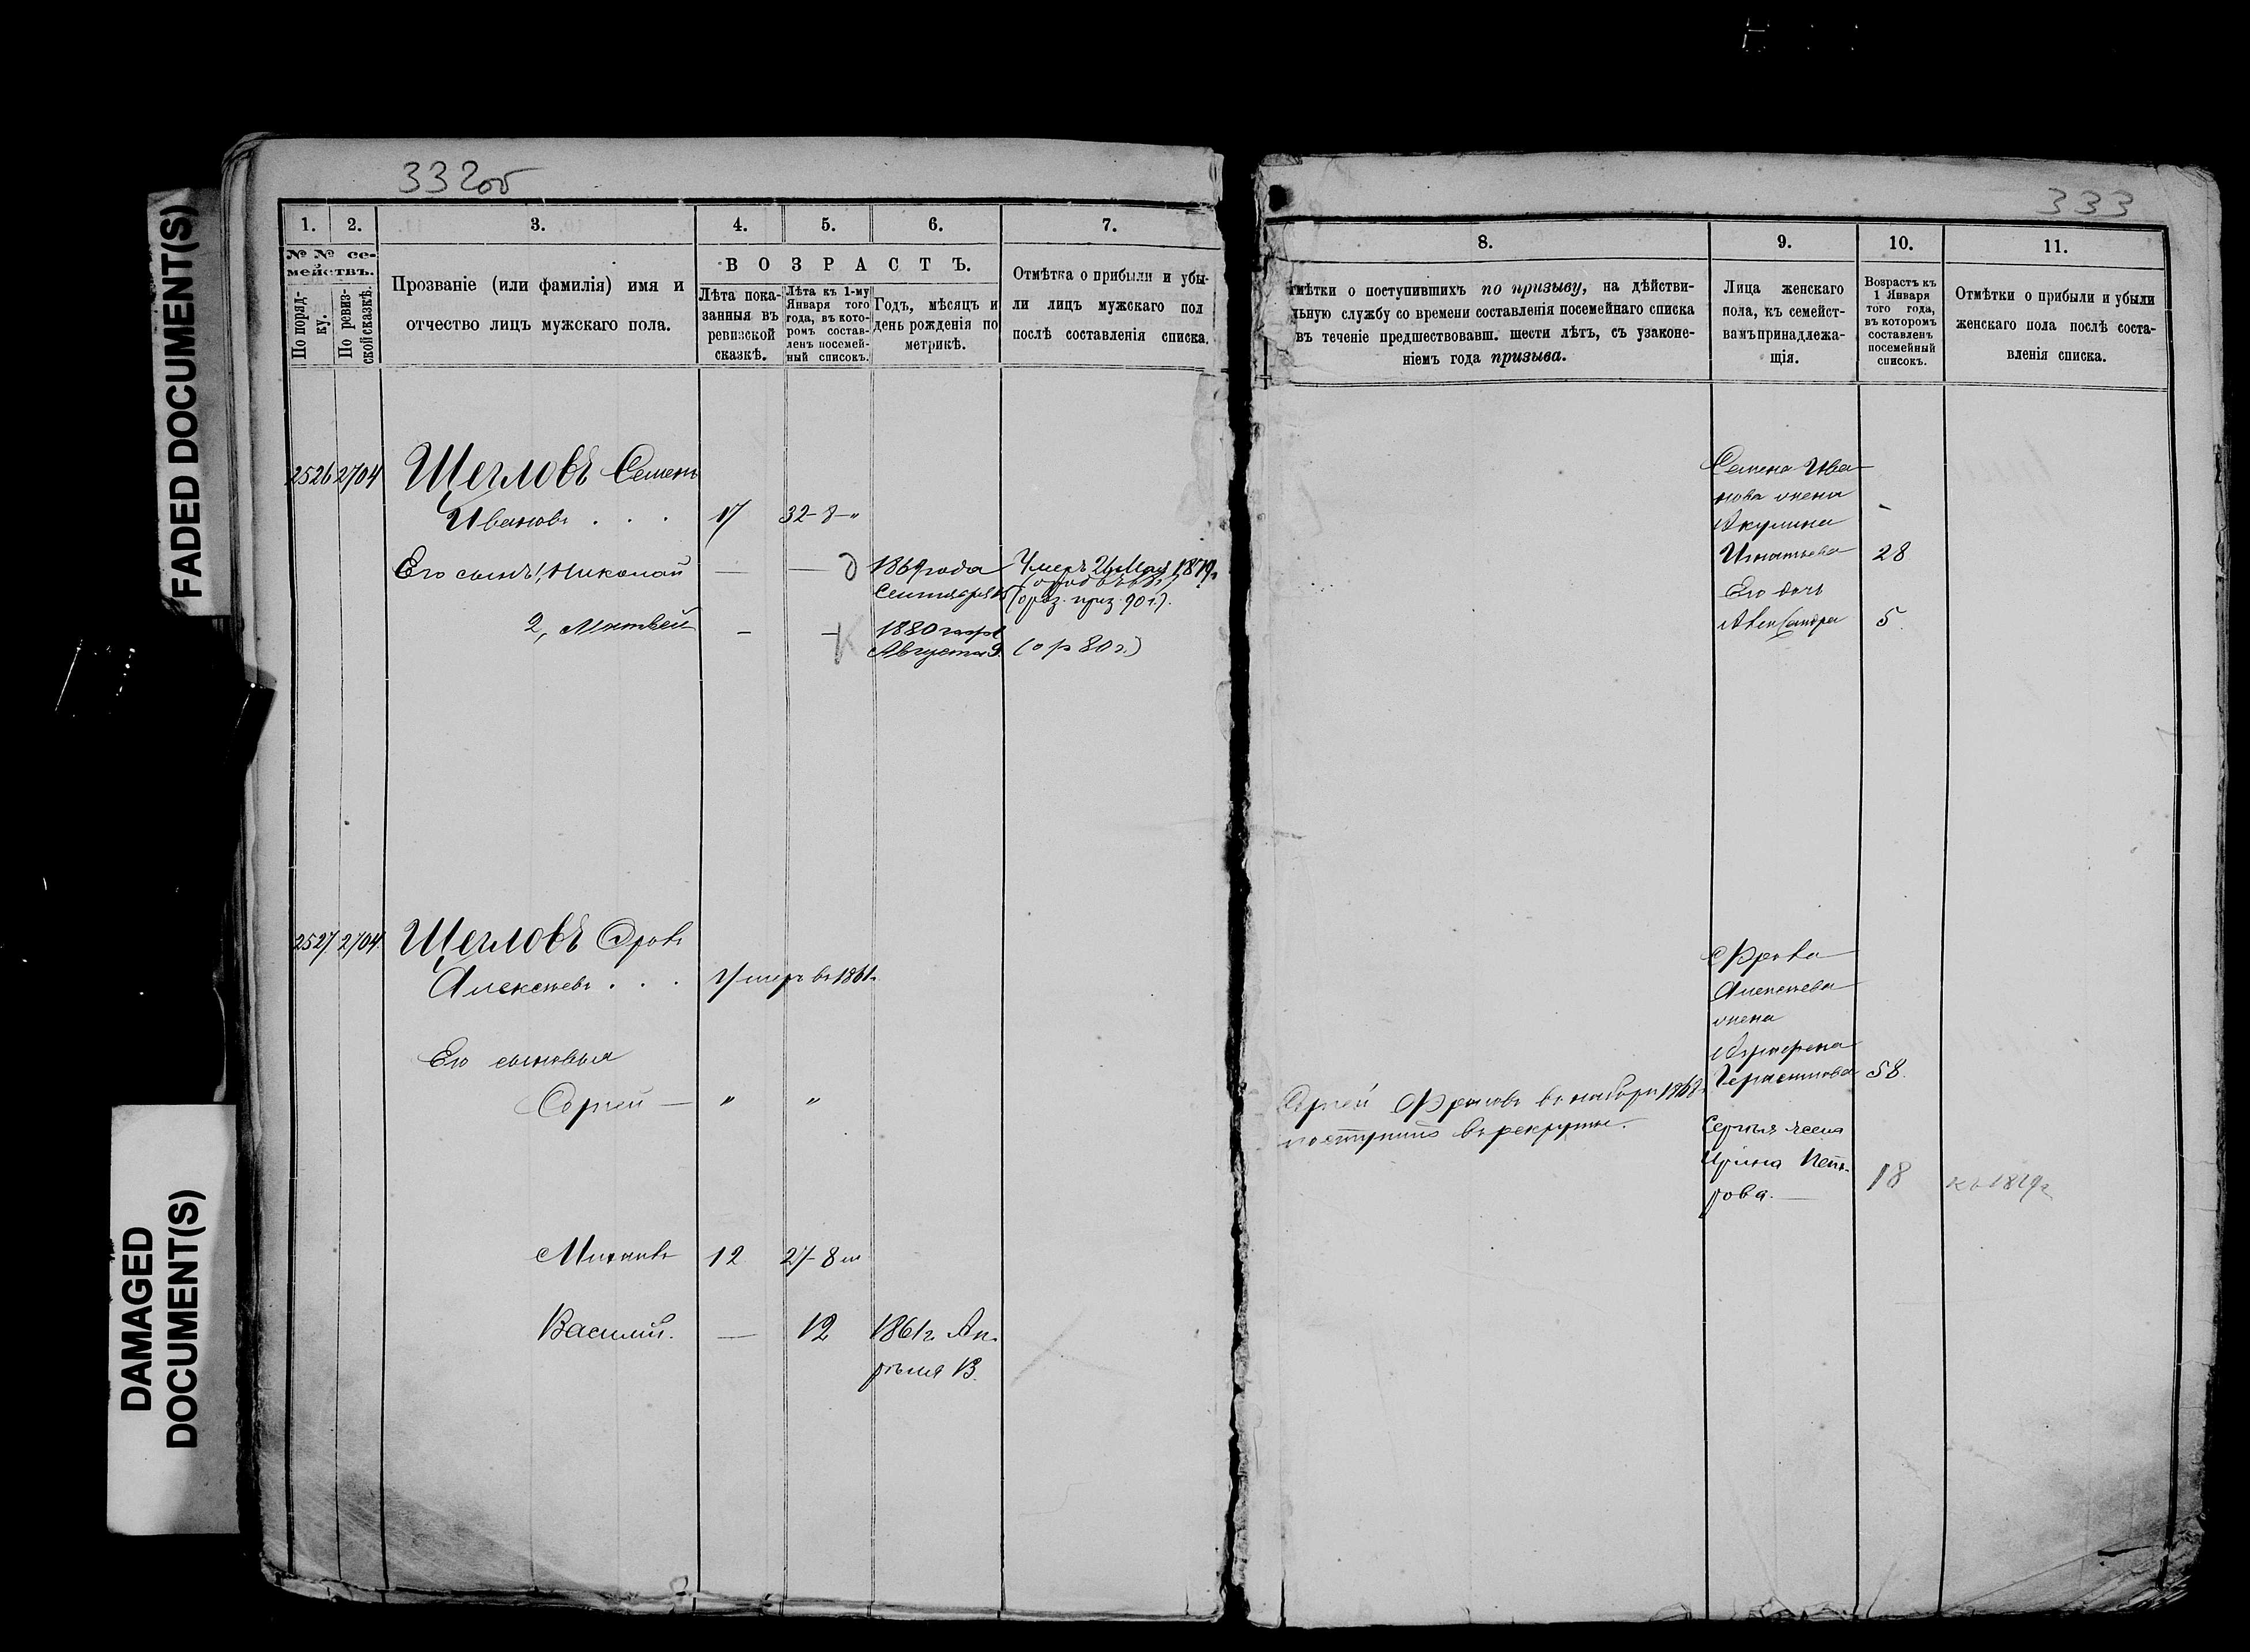 FADED DOCUMENT(S)
DAMAGED
DOCUMENT(S)
332об
1. 2. 3. 4. 5. 6. 7.
№ № се-
мействъ.
По поряд-
ку.
По ревиз-
ской сказкѣ.
Прозваніе (или фамилія) имя и
отчество лицъ мужскаго пола.
ВОЗРАСТЪ.
Лѣта пока-
занныя въ
ревизской
сказкѣ.
Лѣта къ 1-му
Января того
года, въ кото-
ромъ состав-
ленъ посемей-
ный списокъ.
Годъ, мѣсяцъ и
день рожденія по
метрикѣ.
Отмѣтка о прибыли и убы-
ли лицъ мужскаго пол
послѣ составленія списка.
2526 2704 Щегловъ Семенъ
Ивановъ . . . 17 32-8-"
Его сынъ 1, Николай — — 1869 года
Сентября
Умеръ Мая 1879г
(о раз. приз. 90 г.).
2, Матвей - - 1880 года
Августа 9. (о р 80 г.)
2527 2704 Щегловъ Фролъ
Алексѣевъ . . . Умеръ въ 1861г
Его сыновья
Сергѣй — " "
Михаилъ 12 27-8 м
Василій. — 12 1861г. Ап-
рѣля 13.
333
8. 9. 10. 11.
мѣтки о поступившихъ по призыву, на дѣйстви-
льную службу со времени составленія посемейнаго списка
въ теченіе предшествовавш. шести лѣтъ, съ узаконе-
ніемъ года призыва.
Лица женскаго
пола, къ семейст-
вамъ принадлежа-
щія.
Возрастъ къ
1 Января
того года,
въ которомъ
составленъ
посемейный
списокъ.
Отмѣтки о прибыли и убыли
женскаго пола послѣ соста-
вленія списка.
Семена Ива-
нова жена
Акулина
Игнатьева 28
Его дочь
Александра 5.
Фрола
Алексѣева
жена
Аграфена
Герасимова 58.
Сергѣй Фроловъ въ наборъ 1868
поступилъ въ рекруты.
Сергѣя жена
Ирина Пет-
рова. — 18 къ 1879г